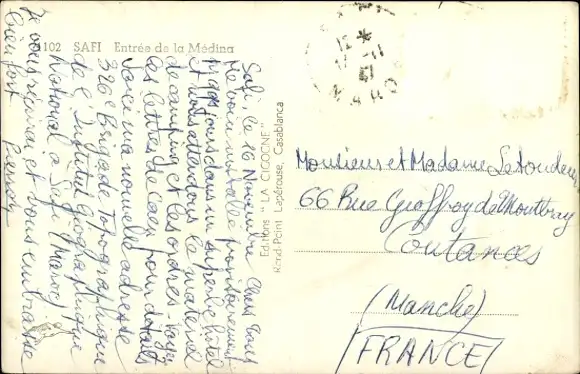 102 SAFI Entrée de la Médina
Safi, le 16 Novembre Chers Tous
Me voici installé provisoirement
nous sommes dans un superbe hôtel
et nous attendons le matériel
de camping et les ordres. Voyez
les lettres de Caen pour détails
Voici ma nouvelle adresse
326e Brigade Topographique
de l'Institut Géographique
National à Safi (Maroc)
Je vous récrirai et vous embrasse
bien fort
Editions "LA CIGOGNE"
Rond-Point Lapérouse, Casablanca
Monsieur et Madame
66 Rue Geoffroy de Montbray
Coutances
(Manche)
FRANCE